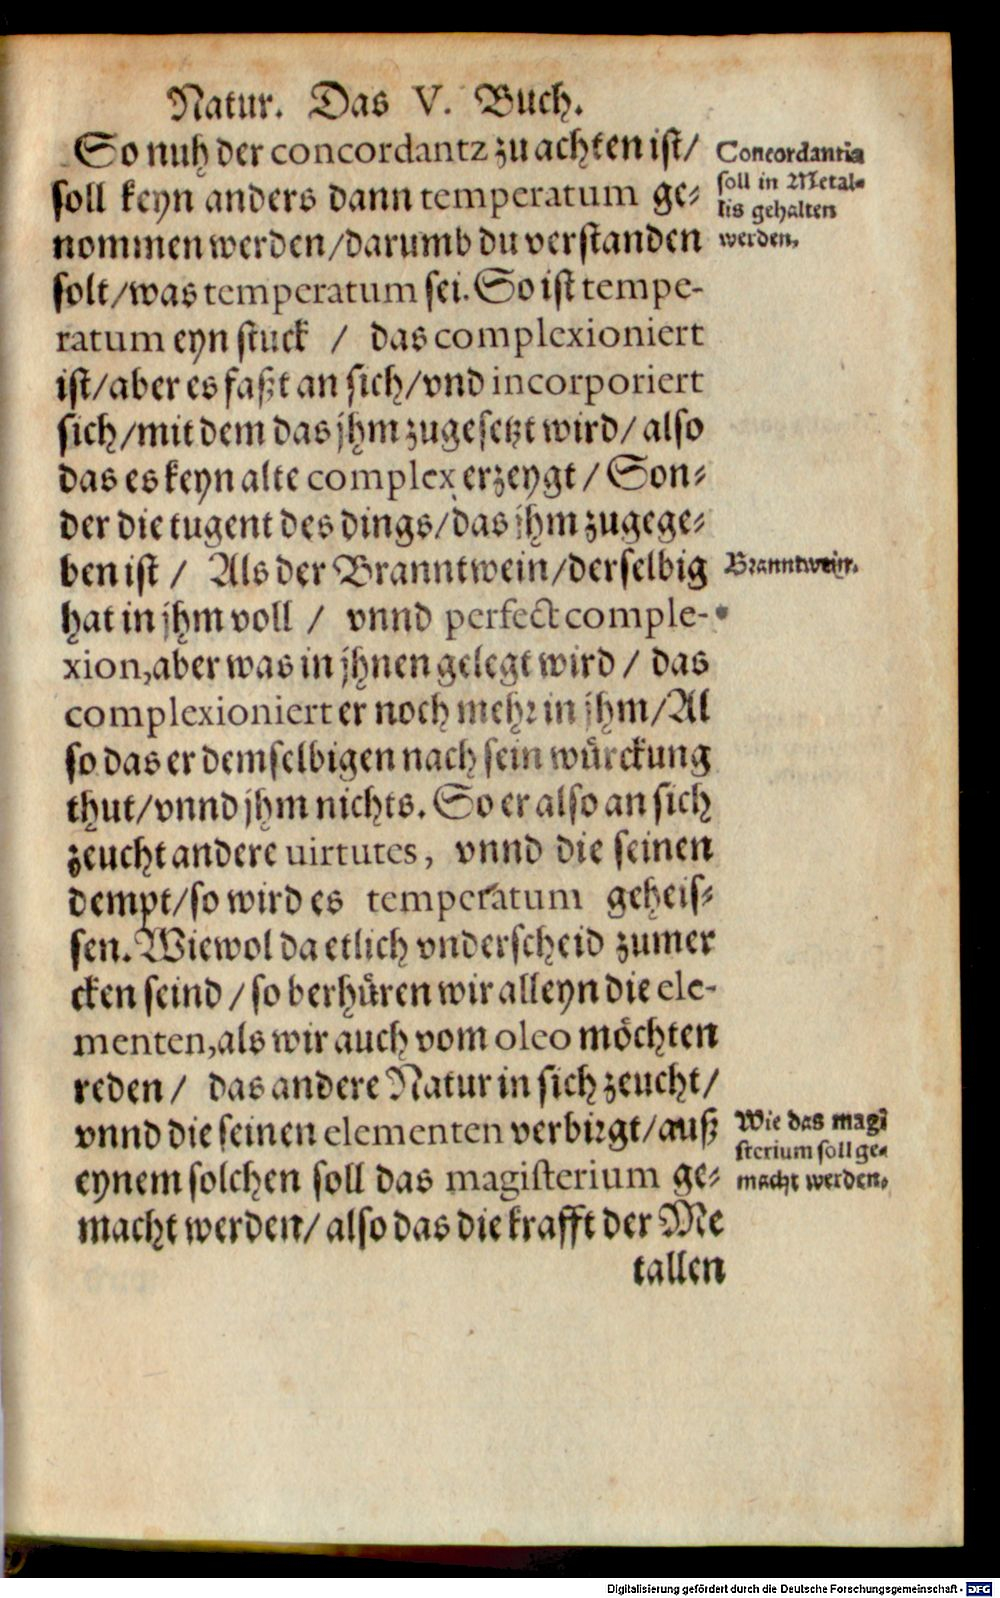 Natur. Das V. Buch.
So nuh der concordantz zu achten ist/
soll keyn anders dann temperatum ge⸗
nommen werden/darumb du verstanden
solt/was temperatum sei. So ist tempe-
ratum eyn stuck / das complexioniert
ist/aber es faßt an sich/vnd incorporiert
sich/mit dem das jhm zugesetzt wird/also
das es keyn alte complex erzeygt/Son⸗
der die tugent des dings/das jhm zugege⸗
ben ist / Als der Branntwein/derselbig
hat in jhm voll / vnnd perfect comple-
xion,aber was in jhnen gelegt wird / das
complexioniert er noch mehr in jhm/Al
so das er demselbigen nach sein würckung
thut/vnnd jhm nichts. So er also an sich
zeucht andere uirtutes, vnnd die seinen
dempt/so wird es temperatum geheis⸗
sen. Wiewol da etlich vnderscheid zumer
cken seind / so berhüren wir alleyn die ele-
menten,als wir auch vom oleo möchten
reden / das andere Natur in sich zeucht/
vnnd die seinen elementen verbirgt/auß
eynem solchen soll das magisterium ge⸗
macht werden/ also das die krafft der Me
tallen
Concordantia
soll in Metal⸗
lis gehalten
werden.
Branntwein.
Wie das magi
sterium soll ge⸗
macht werden.
Digitalisierung gefördert durch die Deutsche Forschungsgemeinschaft - DFG